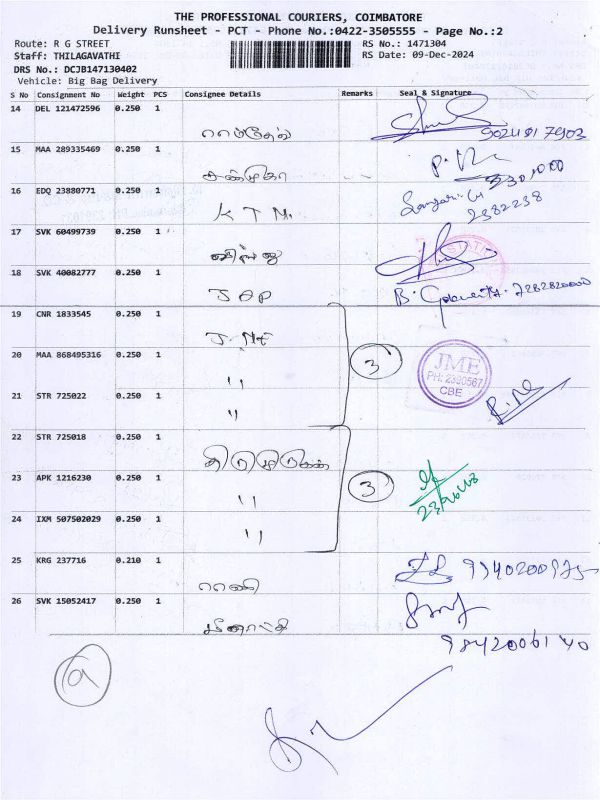 THE PROFESSIONAL COURIERS, COIMBATORE
Delivery Runsheet - PCT - Phone No.:0422-3505555 - Page No.:2
Route: R G STREET RS No.: 1471304
Staff: THILAGAVATHI RS Date: 09-Dec-2024
DRS No.: DCJB147130402
Vehicle: Big Bag Delivery
S No Consignment No Weight PCS Consignee Details Remarks Seal & Signature
14 DEL 121472596 0.250 1
15 MAA 289335469 0.250 1
16 EDQ 23880771 0.250 1
KTM 2382238
17 SVK 60499739 0.250 1
18 SVK 40082777 0.250 1
19 CNR 1833545 0.250 1
20 MAA 868495316 0.250 1
" 3 JME
PH: 2380567
CBE
21 STR 725022 0.250 1
"
22 STR 725018 0.250 1
23 APK 1216230 0.250 1
" 3
24 IXM 507502029 0.250 1
"
25 KRG 237716 0.210 1
ராணி 9940200975
26 SVK 15052417 0.250 1
மீனாட்சி 9842006140
a